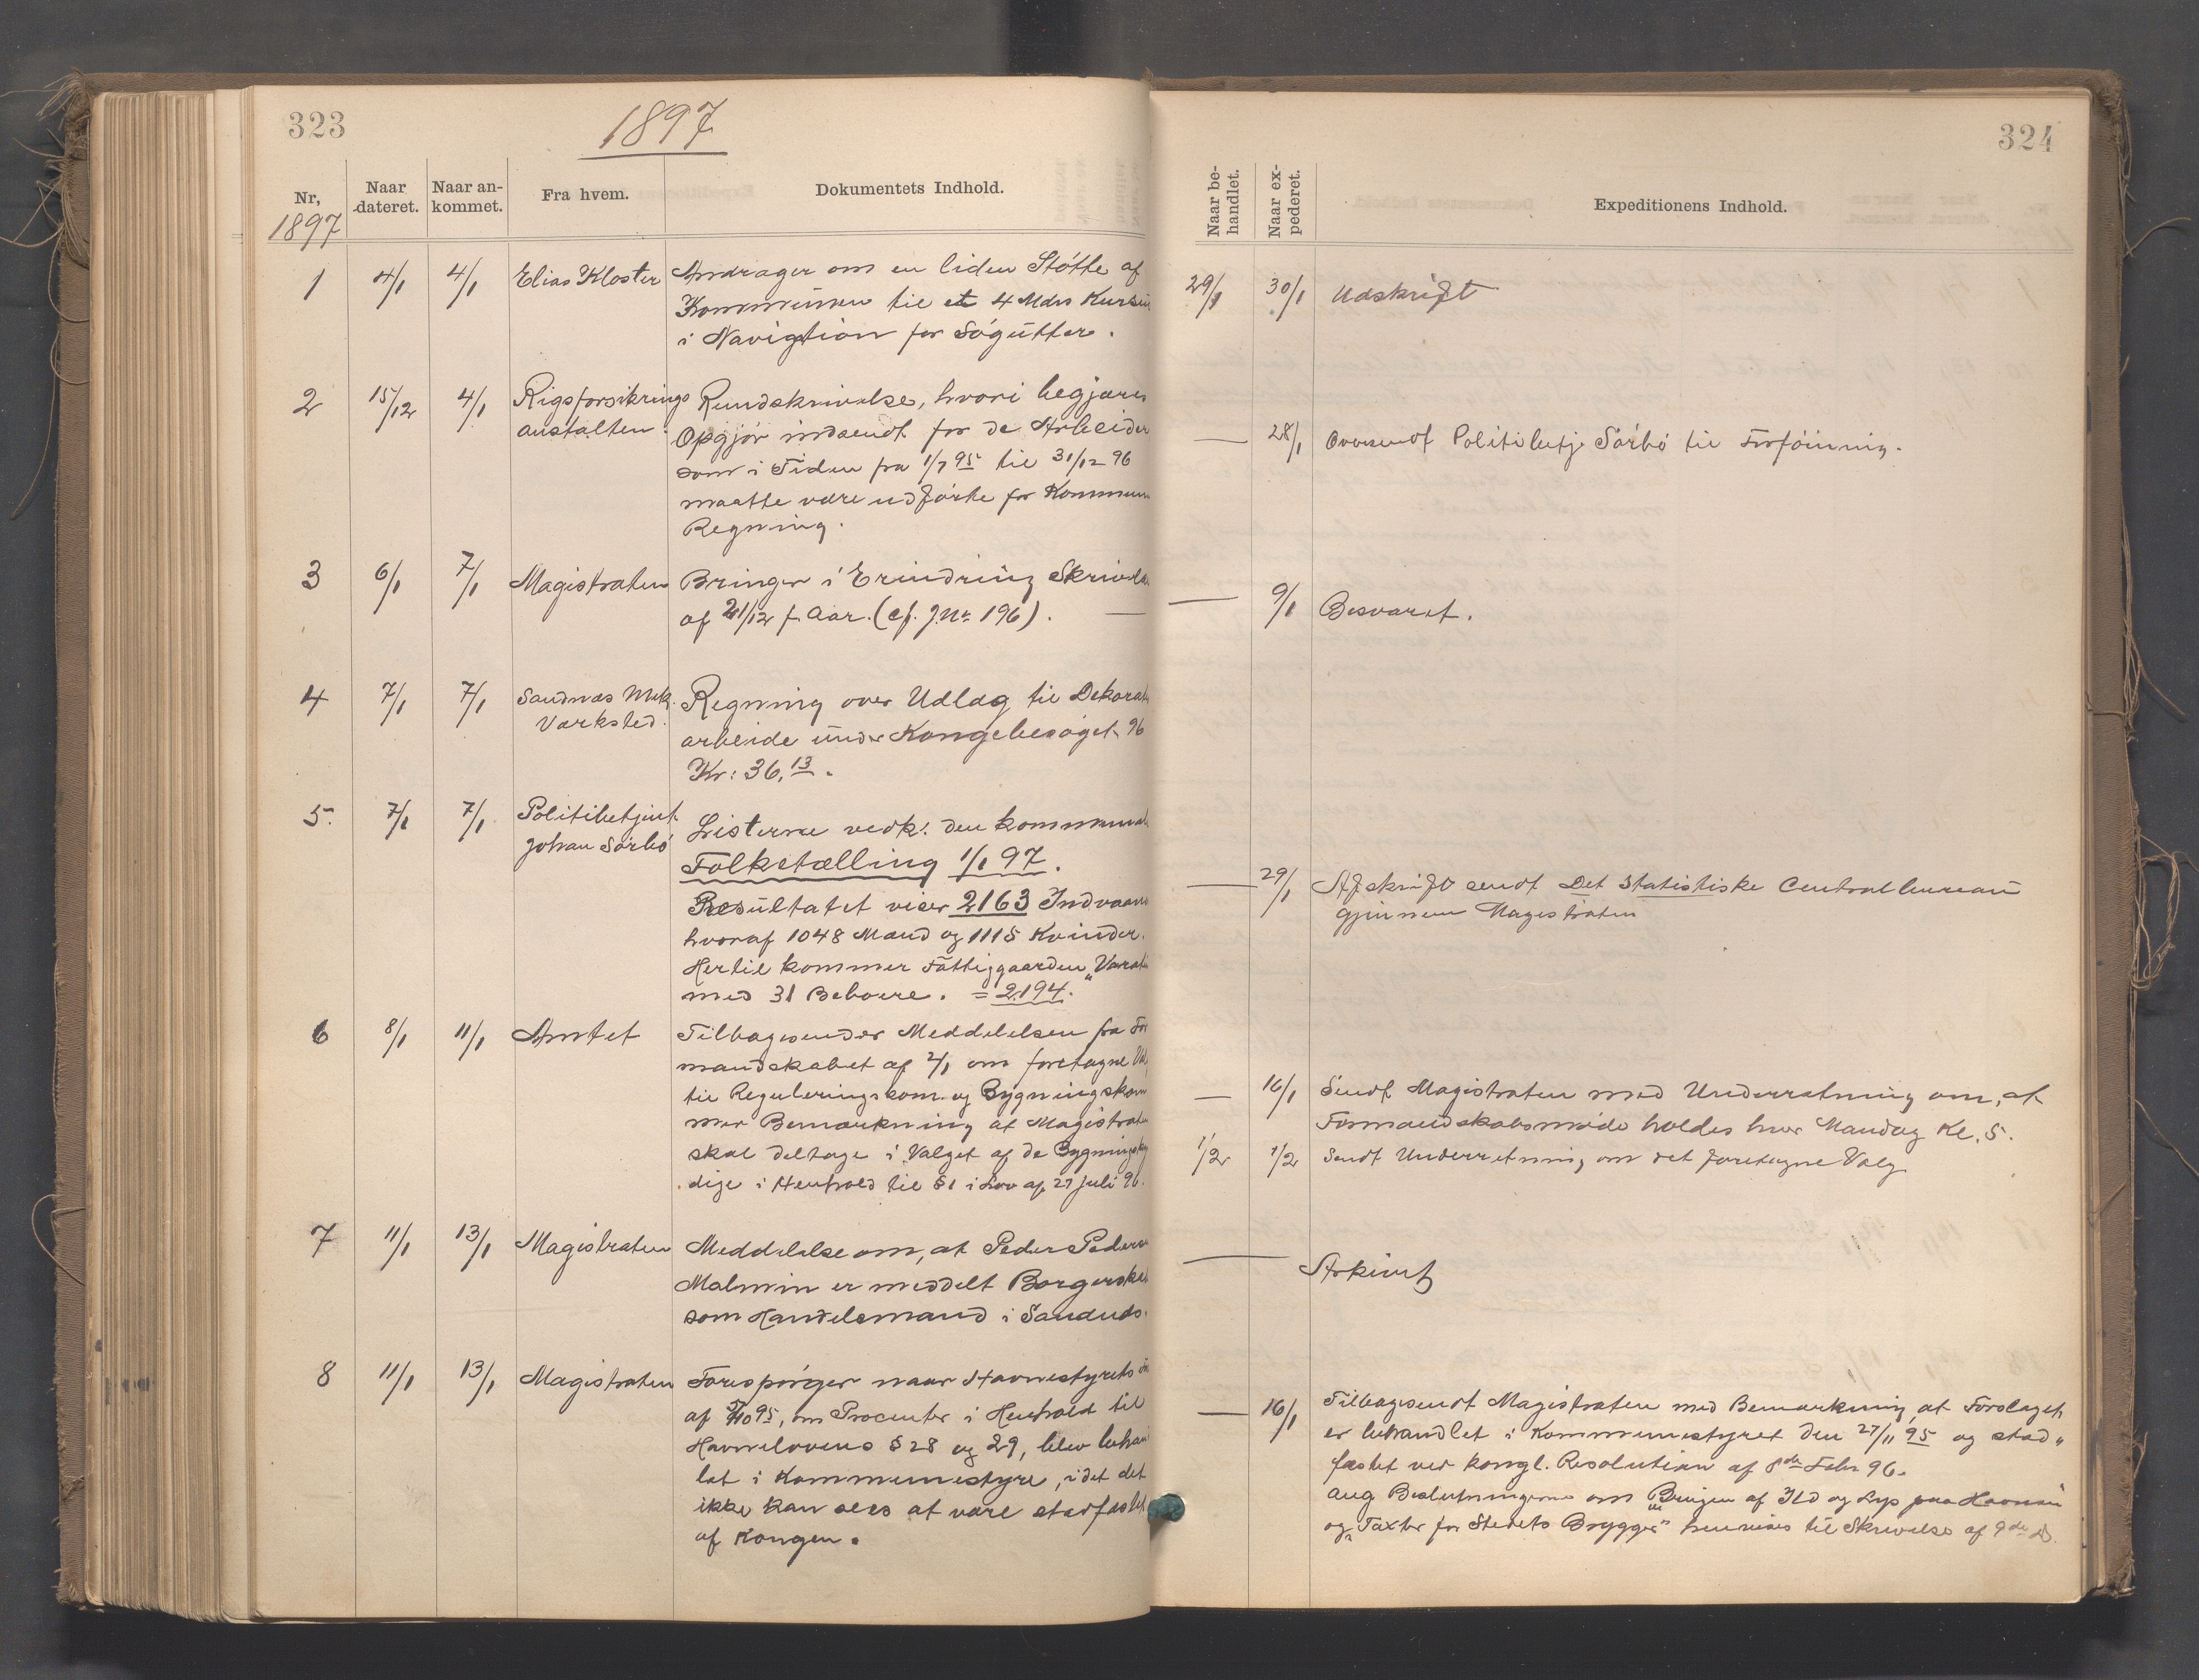 323
1897
Nr,
1897
Naar dateret.
Naar an-
kommet.
Fra hvem.
Dokumentets Indhold.
1 4/1 4/1 Elias Kloster Andrager om en liden Støtte af
Kommunen til et 4 Mdrs Kursus
i Navigtion for Søgutter.
2 15/12 4/1 Rigsforsikrings
anstalten. Rundskrivelse, hvori begjæres
Opgjør indsendt for de Arbeider
som i Tiden fra 1/7 95 til 31/12 96
maatte være udførte for Kommun
Regning.
3 6/1 7/1 Magistraten Bringer i Erindring Skrivelse
af 21/12 f. Aar. (cf. J.Nr 196). —
4 7/1 7/1 Sandnæs Mek.
Værksted. Regning over Udlæg til Dekorat
arbeide under Kongebesøget 96
Kr: 36,13.
5. 7/1 7/1 Politibetjent
Johan Sørbø Listerne vedk. den kommunal
Folketælling 1/1 97.
Resultatet viser 2163 Indvaan
hvoraf 1048 Mænd og 1115 Kvinder.
Hertil kommer Fattiggaarden „Varat
med 31 Beboere. = 2194.
6 8/1 11/1 Amtet Tilbagesender Meddelelsen fra For
mandskabet af 2/1 om foretagne Val
til Reguleringskom. og Bygningskom
med Bemærkning at Magistraten
skal deltage i Valget af de Bygningskyn
dige i Henhold til § 1 i Lov af 27 juli 96.
7 11/1 13/1 Magistraten Meddelelse om, at Peder Peders
Malmin er meddelt Borgerskab
som Handelsmand i Sandnæs.
8 11/1 13/1 Magistraten Forespørger naar Havnestyrets
af 7/10 95, om Procenter i Henhold til
Havnelovens § 28 og 29, blev behan
let i Kommunestyre, idet det
ikke kan sees at være stadfæstet
af Kongen.
324
Naar be-
handlet.
Naar ex-
pederet.
Expeditionens Indhold.
29/1 30/1 Udskrift
— 28/1 Oversendt Politibetj. Sørbø til Forføining.
— 9/1 Besvaret.
— 29/1 Afskrift sendt Det statistiske Centralbureau
gjennem Magistraten
— 16/1 Sendt Magistraten med Underretning om, at
Formandskabsmøde holdes hver Mandag Kl. 5.
1/2 1/2 Sendt Underretning om det foretagne Valg
— Arkivet
— 16/1 Tilbagesendt Magistraten med Bemærkning, at Forslaget
er behandlet i Kommunestyret den 27/11 95 og stad„
fæstet ved kongl. Resolution af 8de Febr 96.
Ang Beslutningerne om „Brugen af Ild og Lys paa Havnen
og „Taxter for Stedets Brygger" henvises til Skrivelse af 9de ds.